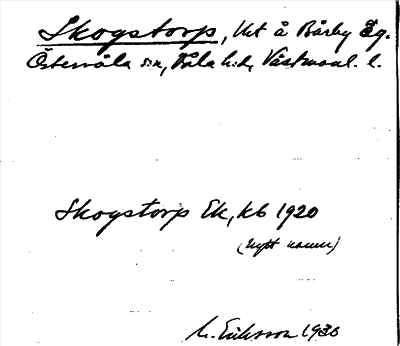 Skogstorp, lht å Bärby Äg.
Östervåla sn, Våla hd, Västmanl. l.
Skogstorp Ek, kb 1920
(nytt namn)
M. Eriksson 1936